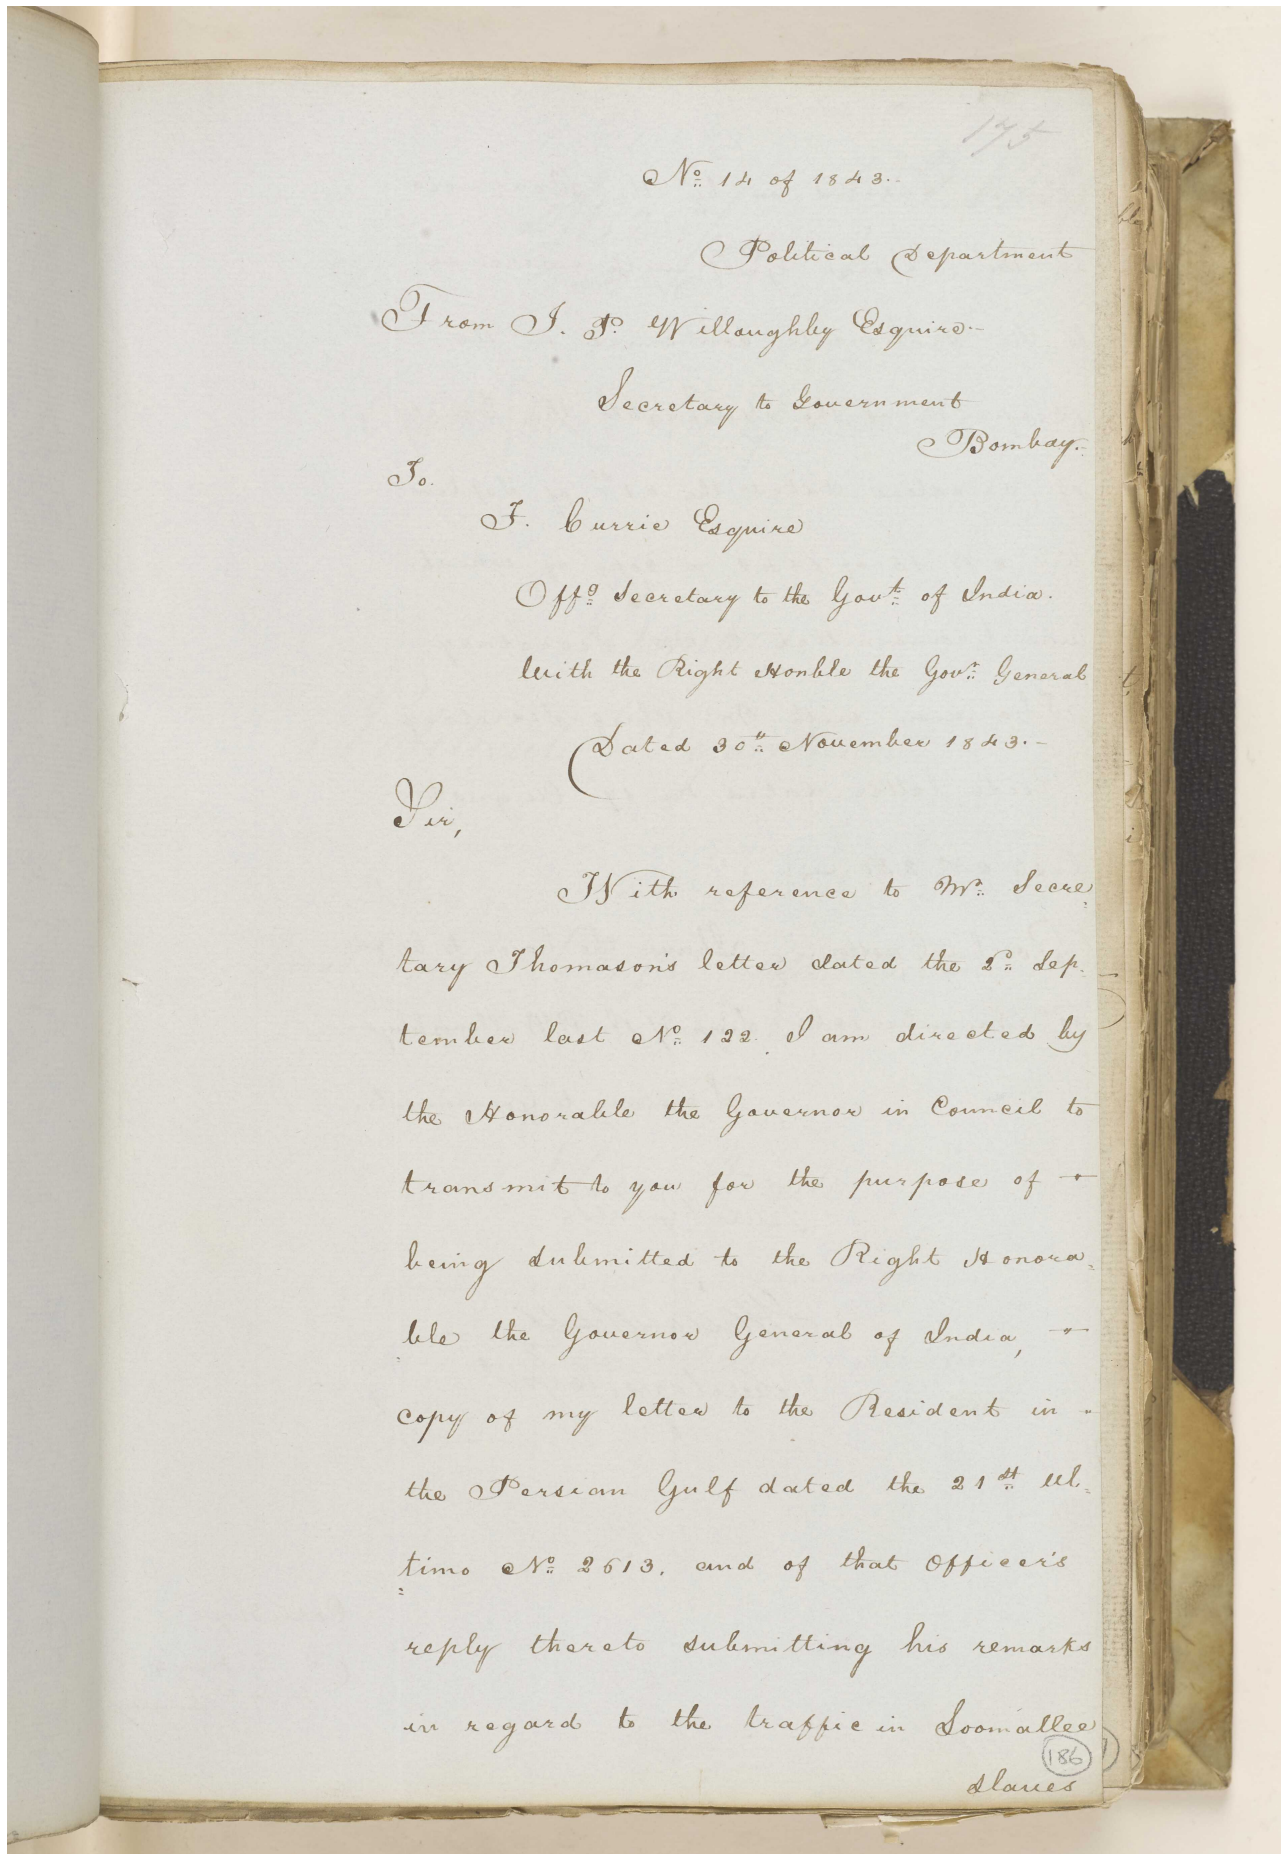 175
No. 14 of 1843.-
Political Department
From J. P. Willoughby Esquire.-
Secretary to Government
Bombay.-
To.
F. Currie Esquire
Offg. Secretary to the Govt. of India.
With the Right Honble the Govr. General
Dated 30th November 1843.-
Sir,
With reference to Mr. Secre
tary Thomason's letter dated the 2d. Sep-
tember last No. 122. I am directed by
the Honorable the Governor in Council to
transmit to you for the purpose of -
being submitted to the Right Honora-
ble the Governor General of India, -
copy of my letter to the Resident in -
the Persian Gulf dated the 21st Ul-
timo No. 2613. and of that Officer's
reply thereto submitting his remarks
in regard to the traffic in Soomallee
186
slaves